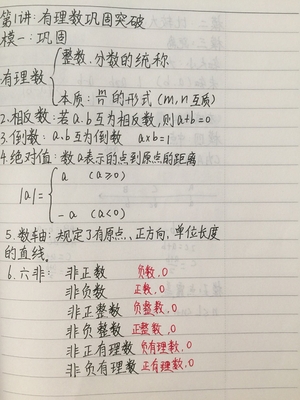 第1讲:有理数巩固突破
模一:巩固
有理数 { 整数、分数的统称
本质: m/n 的形式 (m,n互质)
2.相反数:若a.b互为相反数,则a+b=0
3.倒数:a.b互为倒数 a×b=1
4.绝对值:数a表示的点到原点的距离
|a|= { a (a≥0)
-a (a<0)
5.数轴:规定了有原点、正方向、单位长度
的直线。
6.六非: 非正数 负数,0
非负数 正数,0
非正整数 负整数,0
非负整数 正整数,0
非正有理数 负有理数,0
非负有理数 正有理数,0